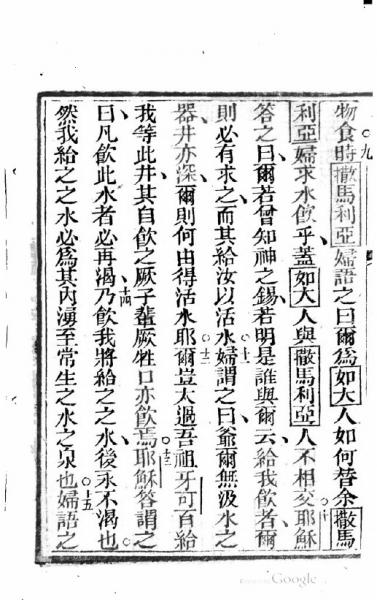 物食時○九撒馬利亞婦語之曰爾爲如大人如何替余撒馬
利亞婦求水飲乎蓋如大人與撒馬利亞人不相交○十耶穌
答之曰爾若曾知神之錫若明是誰與爾云給我飲者爾
則必有求之而其給汝以活水○十一婦謂之曰爺爾無汲水之
器井亦深爾則何由得活水耶○十二爾豈太過吾祖牙可百給
我等此井其自飲之厥子輩厥牲口亦飲焉○十三耶穌答謂之
曰凡飲此水者必再渴十四乃飲我將給之之水後永不渴也
然我給之之水必爲其內湧至常生之水之泉也○十五婦語之
Google